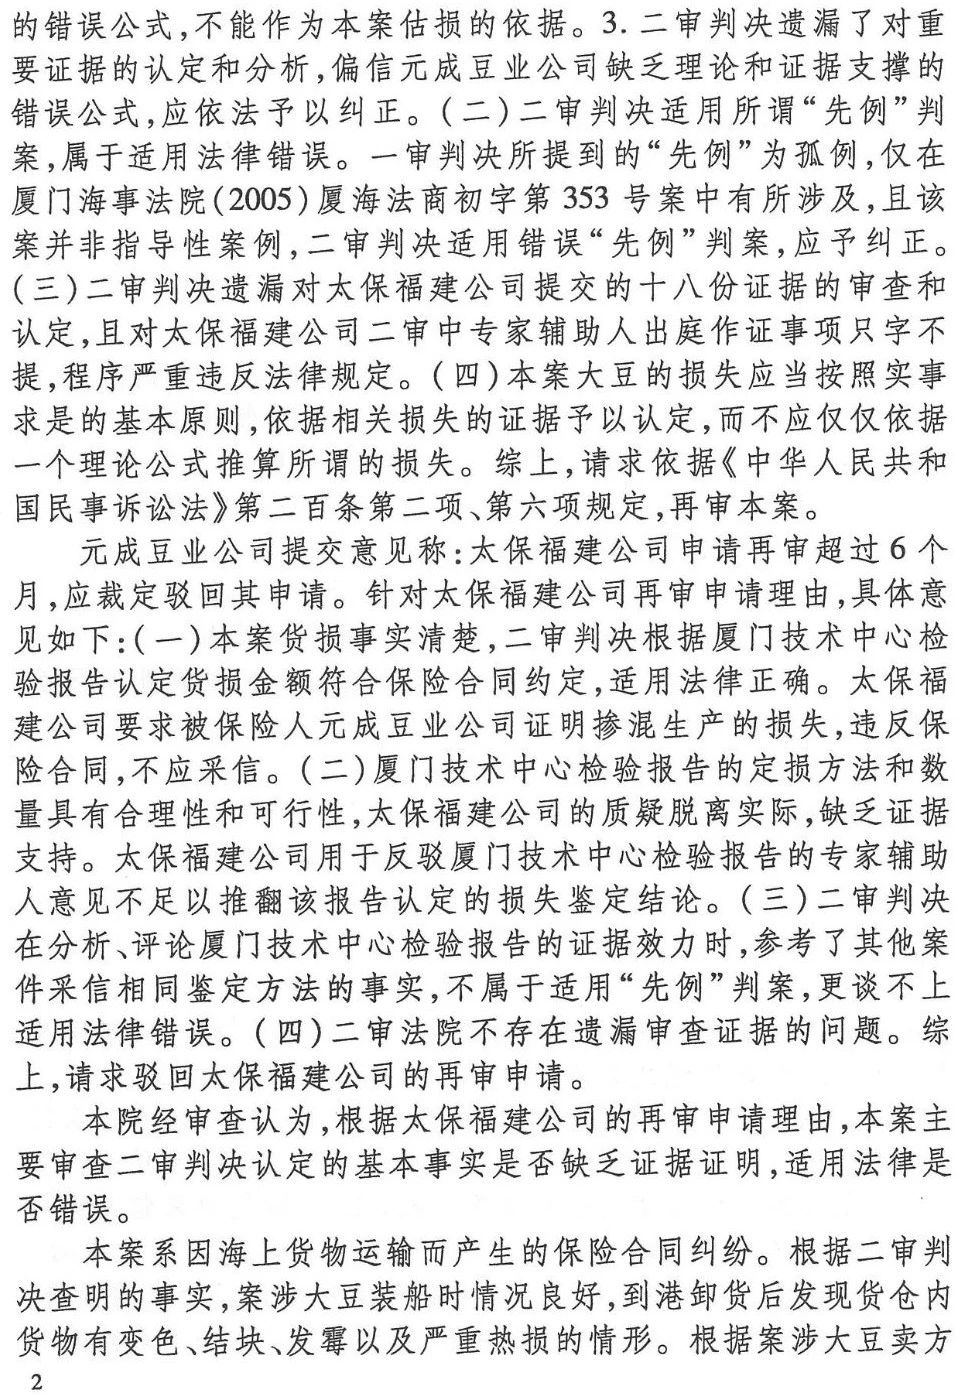 的错误公式,不能作为本案估损的依据。3. 二审判决遗漏了对重
要证据的认定和分析,偏信元成豆业公司缺乏理论和证据支撑的
错误公式,应依法予以纠正。(二)二审判决适用所谓“先例”判
案,属于适用法律错误。一审判决所提到的“先例”为孤例,仅在
厦门海事法院(2005)厦海法商初字第 353 号案中有所涉及,且该
案并非指导性案例,二审判决适用错误“先例”判案,应予纠正。
(三)二审判决遗漏对太保福建公司提交的十八份证据的审查和
认定,且对太保福建公司二审中专家辅助人出庭作证事项只字不
提,程序严重违反法律规定。(四)本案大豆的损失应当按照实事
求是的基本原则,依据相关损失的证据予以认定,而不应仅仅依据
一个理论公式推算所谓的损失。综上,请求依据《中华人民共和
国民事诉讼法》第二百条第二项、第六项规定,再审本案。
元成豆业公司提交意见称:太保福建公司申请再审超过 6 个
月,应裁定驳回其申请。针对太保福建公司再审申请理由,具体意
见如下:(一)本案货损事实清楚,二审判决根据厦门技术中心检
验报告认定货损金额符合保险合同约定,适用法律正确。太保福
建公司要求被保险人元成豆业公司证明掺混生产的损失,违反保
险合同,不应采信。(二)厦门技术中心检验报告的定损方法和数
量具有合理性和可行性,太保福建公司的质疑脱离实际,缺乏证据
支持。太保福建公司用于反驳厦门技术中心检验报告的专家辅助
人意见不足以推翻该报告认定的损失鉴定结论。(三)二审判决
在分析、评论厦门技术中心检验报告的证据效力时,参考了其他案
件采信相同鉴定方法的事实,不属于适用“先例”判案,更谈不上
适用法律错误。(四)二审法院不存在遗漏审查证据的问题。综
上,请求驳回太保福建公司的再审申请。
本院经审查认为,根据太保福建公司的再审申请理由,本案主
要审查二审判决认定的基本事实是否缺乏证据证明,适用法律是
否错误。
本案系因海上货物运输而产生的保险合同纠纷。根据二审判
决查明的事实,案涉大豆装船时情况良好,到港卸货后发现货仓内
货物有变色、结块、发霉以及严重热损的情形。根据案涉大豆卖方
2